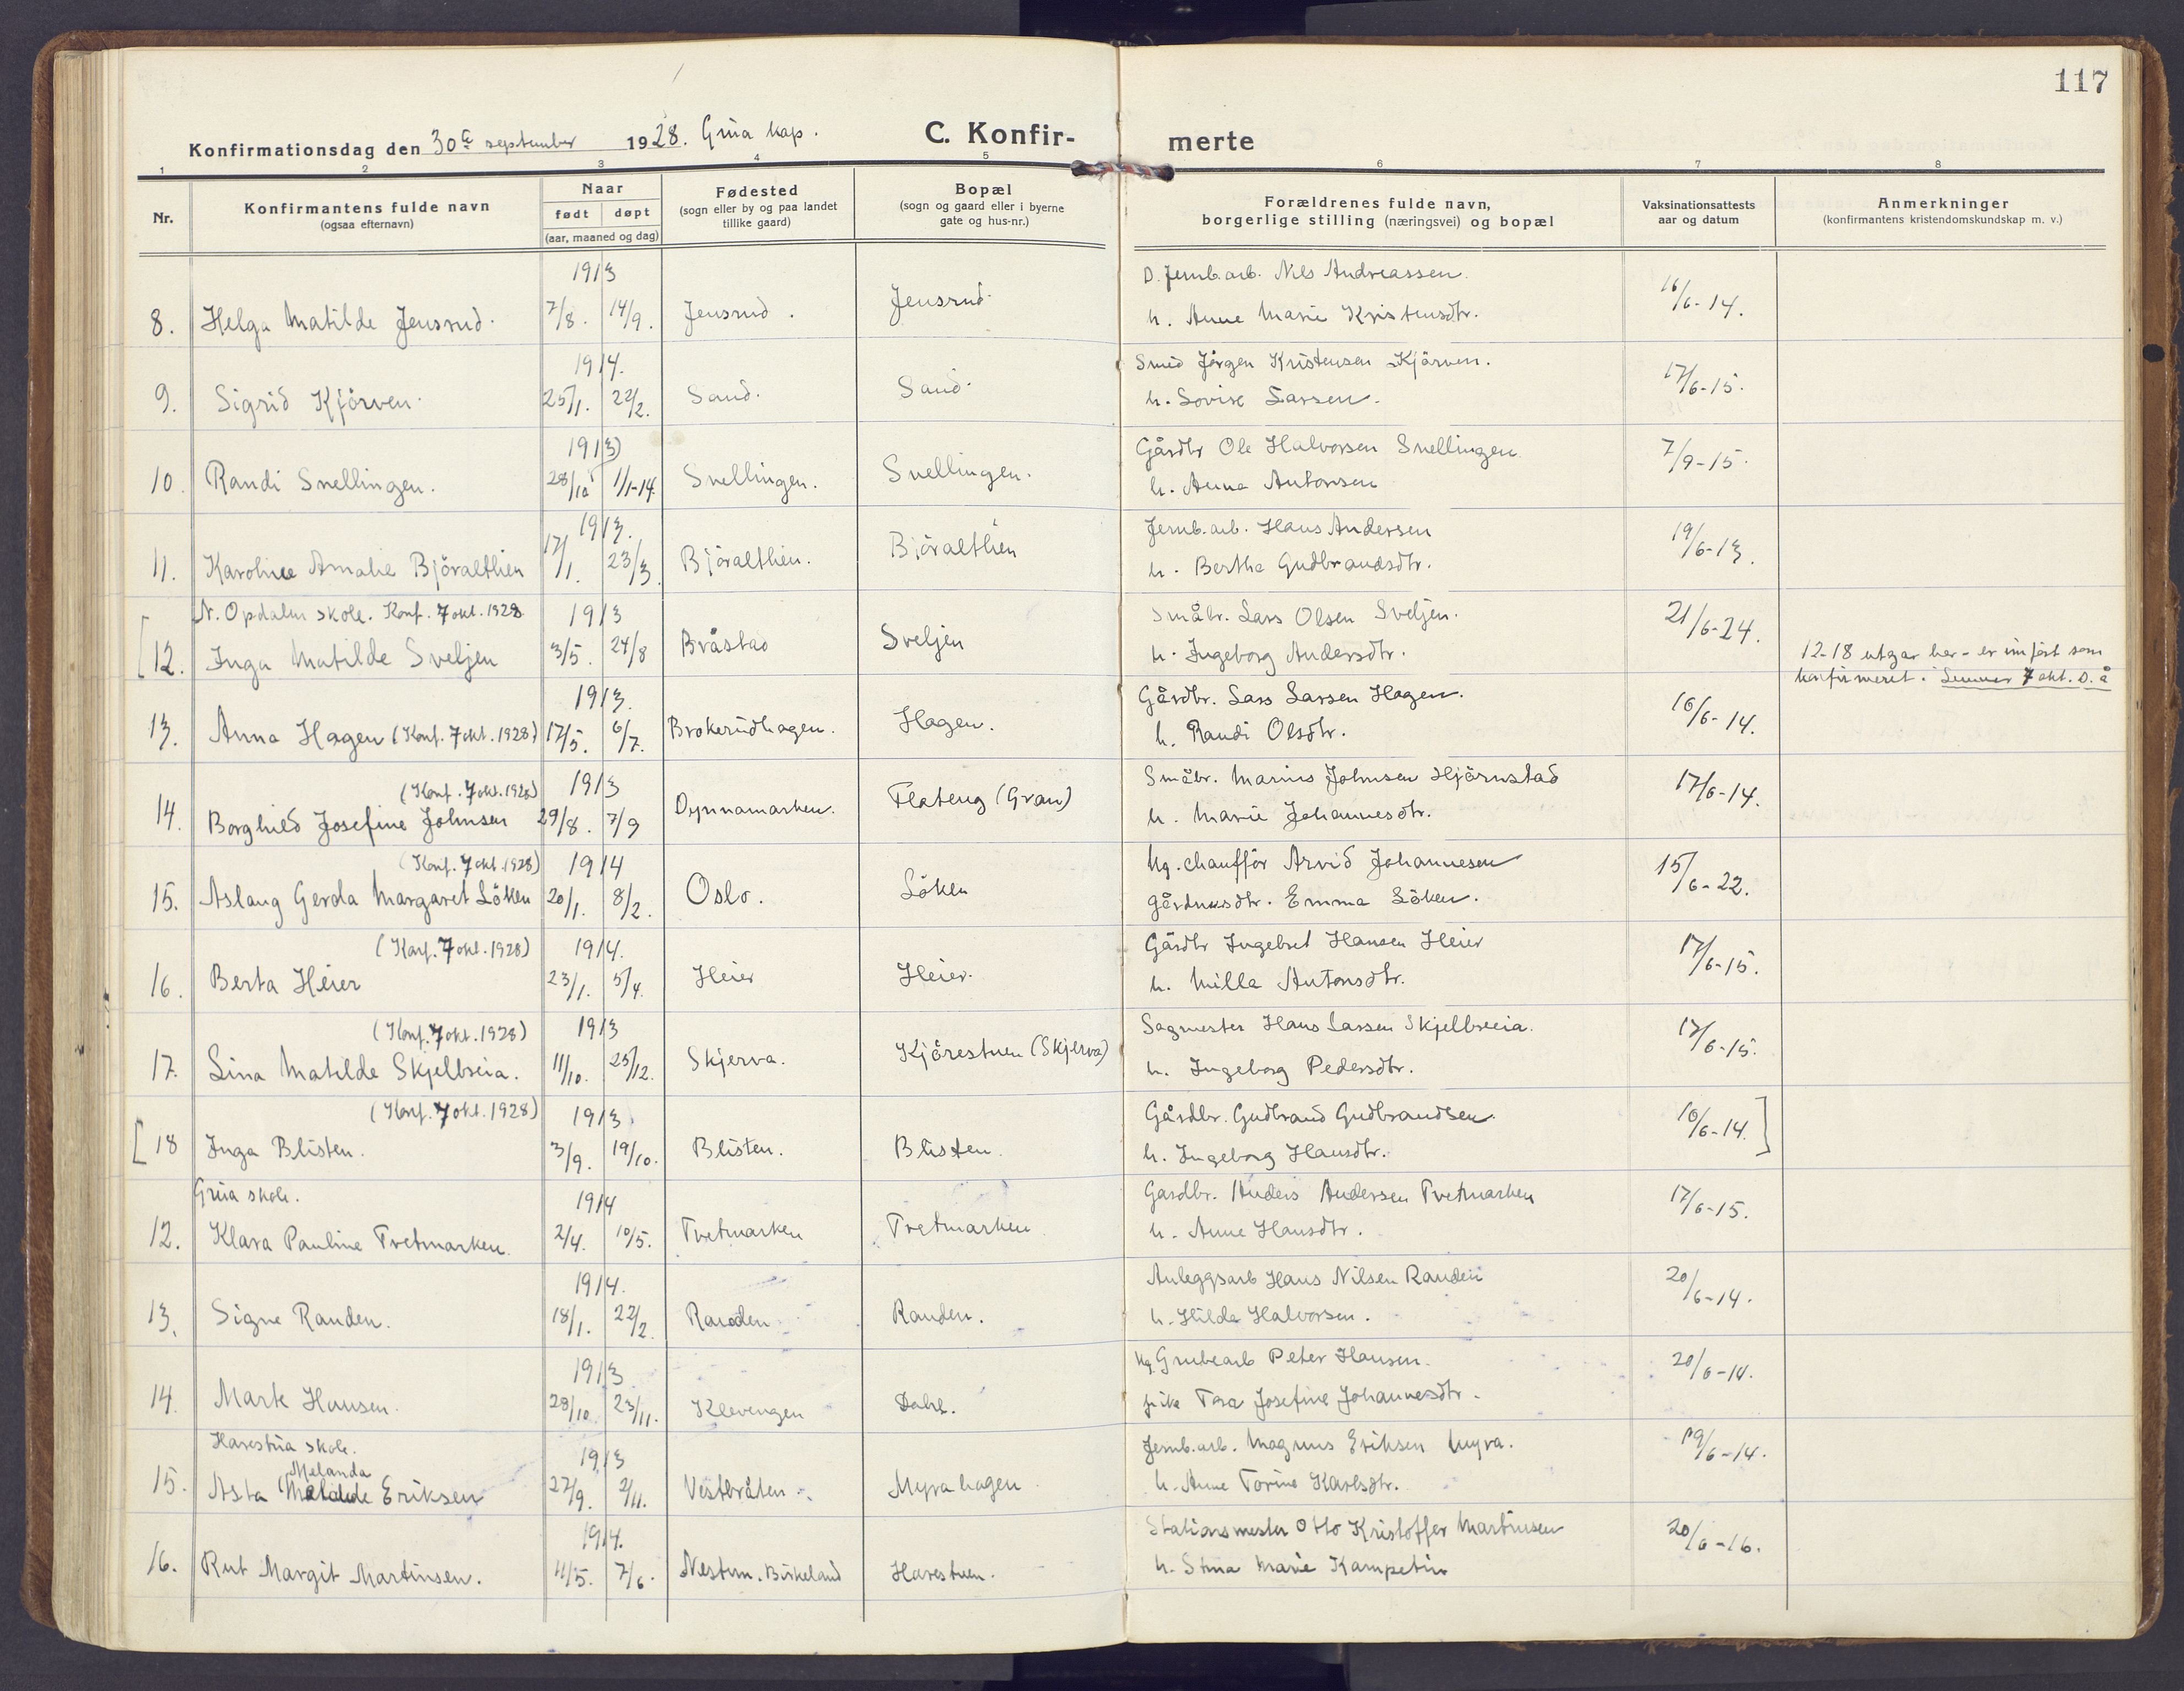 117
Konfirmationsdag den 30te september 1928. Grua kap.
C. Konfir-
merte
1 2 3 4 5 6 7 8
Nr.
Konfirmantens fulde navn
(ogsaa efternavn)
Naar
født døpt
(aar, maaned og dag)
Fødested
(sogn eller by og paa landet
tillike gaard)
Bopæl
(sogn og gaard eller i byerne
gate og hus-nr.)
Forældrenes fulde navn,
borgerlige stilling (næringsvei) og bopæl
Vaksinationsattests
aar og datum
Anmerkninger
(konfirmantens kristendomskundskap m. v.)
1913 D. Jernb.arb. Nils Andreassen.
8. Helga Matilde Jensrud. 7/8. 14/9. Jensrud. Jensrud. h. Anne Marie Kristensdtr. 16/6-14.
1914. Smed Jörgen Kristensen Kjörven.
9. Sigrid Kjörven. 25/1. 22/2. Sand. Sand. h. Lovise Larsen. 17/6-15.
1913) Gårdbr Ole Halvorsen Snellingen
10. Randi Snellingen. 28/10 1/1-14. Snellingen. Snellingen. h. Anna Antonsen 7/9-15.
1913. Jernb.arb. Hans Andersen
11. Karoline Amalie Björalthien 17/1. 23/3. Björalthien. Björalthien h. Bertha Gudbrandsdtr. 19/6-13.
N. Opdalen skole. Konf. 7 okt. 1928 1913 Småbr. Lars Olsen Sveljen.
[12. Inga Matilde Sveljen 3/5. 24/8 Bråstad Sveljen h. Ingeborg Andersdtr. 21/6-24.
12-18 utgar her - er innfört som
konfirmeret i Lunner 7 okt. d. å
1913. Gårdbr. Lars Larsen Hagen.
13. Anna Hagen (Konf. 7 okt. 1928) 17/5. 6/7. Brokerudhagen. Hagen. h. Randi Olsdtr. 16/6-14.
(Konf. 7 okt. 1928) 1913 Småbr. Marius Johnsen Hjörnstad
14. Borghild Josefine Johnsen 29/8. 7/9 Dynnamarken. Flateng (Gran) h. Marie Johannesdtr. 17/6-14.
(Konf. 7 okt. 1928) 1914 Ug. chafför Arvid Johannesen
15. Aslaug Gerda Margaret Löken 20/1. 8/2. Oslo. Löken Emma Löken. 15/6-22.
(Konf. 7 okt. 1928) 1914. Gårdbr Ingebret Hansen Heier
16. Berta Heier 23/1. 5/4. Heier Heier. h. Milla Antonsdtr. 17/6-15.
(Konf. 7 okt. 1928) 1913 Sagmester Hans Larsen Skjellbreia.
17. Lina Matilde Skjelbreia. 11/10. 25/12. Skjerva. Kjörestuen (Skjerva) h. Ingeborg Pedersdtr. 17/6-15.
(Konf. 7 okt. 1928) 1913 Gårdbr. Gudbrand Gudbrandsen.
[18 Inga Blisten. 3/9. 19/10. Blisten. Blisten. h. Ingeborg Hansdtr. 10/6-14.]
Grua skole. 1914 Gardbr. Anders Andersen Tvetmarken
12. Klara Pauline Tvetmarken. 2/4. 10/5. Tvetmarken Tvetmarken h. Anne Hansdtr. 17/6-15.
1914. Anleggsarb Hans Nilsen Randen
13. Signe Randen. 18/1. 22/2. Randen Randen. h. Hilda Halvorsen. 20/6-14.
1913 Ug. Grubearb Peter Hansen.
14. Marte Hansen. 28/10 23/11. Klevengen Dahl. pike Tora Josefine Johannesdtr. 20/6-14.
Harestua skole. 1913 Jernb.arb. Magnus Eriksen Myra.
Melanda
15. Asta Eriksen 27/9. 2/11. Vestbråten. Myrahagen h. Anne Torine Karlsdtr. 19/6-14.
1914. Stationsmester Otto Kristoffer Martinsen
16. Rut Margit Martinsen. 11/5. 7/6. Nestun. Birkeland Harestuen. h. Stina Marie Kampetin 20/6-16.